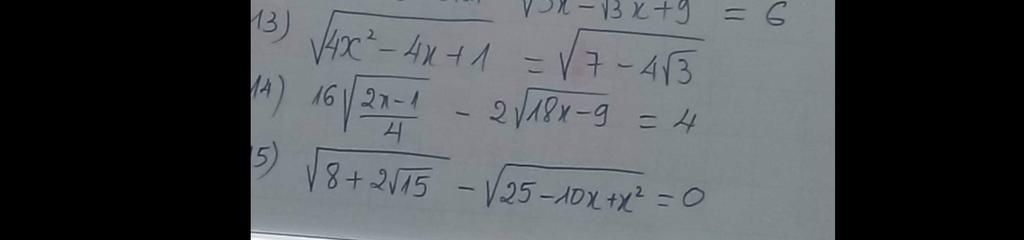 √3x+9 = 6
13) √(4x² - 4x + 1) = √(7 - 4√3)
14) 16√((2x-1)/4) - 2√(18x-9) = 4
5) √(8 + 2√15) - √(25 - 10x + x²) = 0